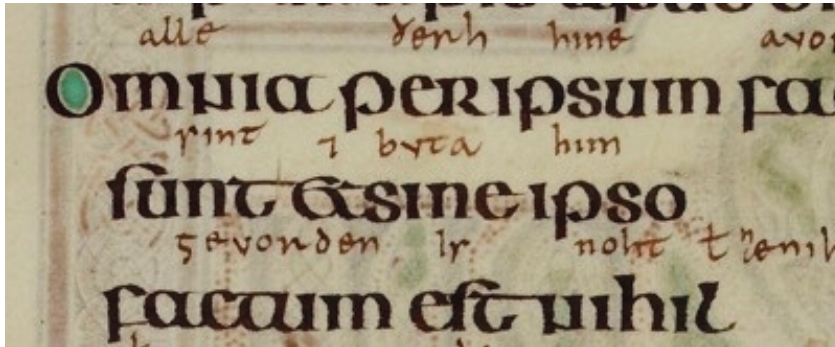 alle ðerh hine
Omnia per ipsum fa
sint ⁊ buta him
sunt & sine ipso
gevorden is noht ł
factum est nihil